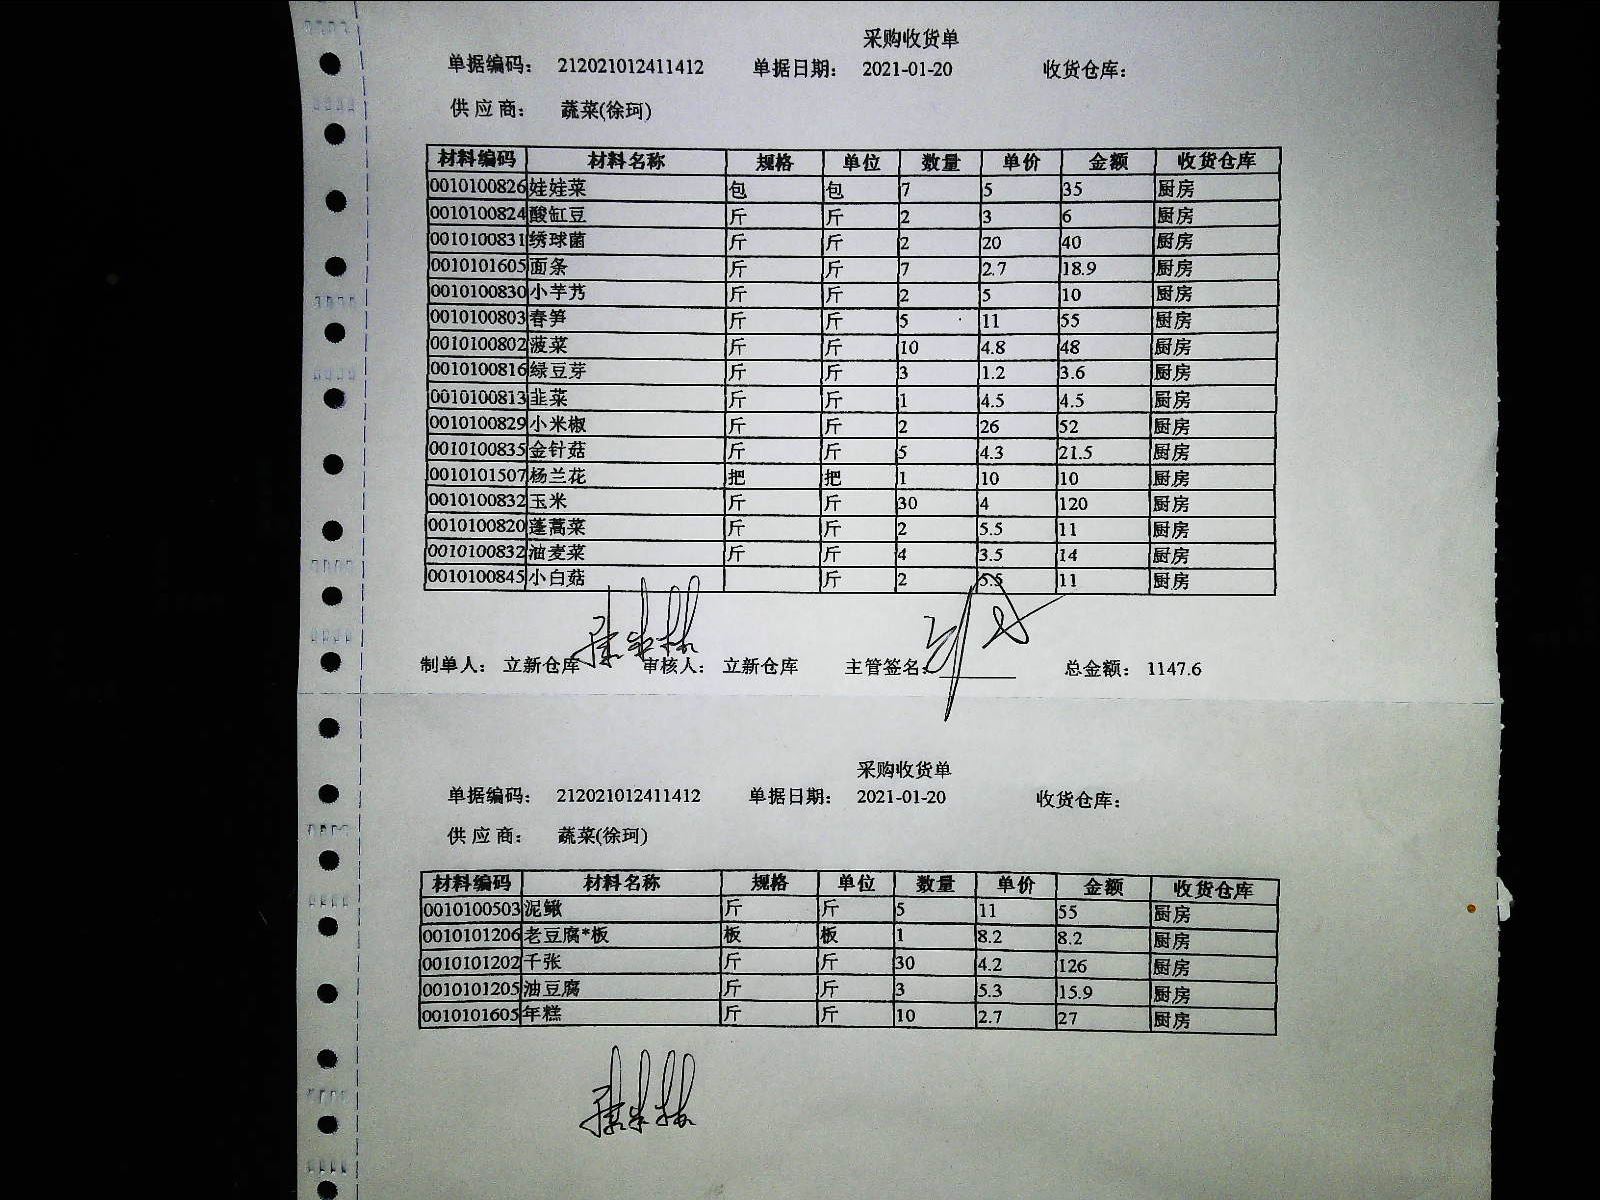 采购收货单
单据编码： 212021012411412 单据日期： 2021-01-20 收货仓库：
供应商： 蔬菜(徐珂)
材料编码 材料名称 规格 单位 数量 单价 金额 收货仓库
0010100826 娃娃菜 包 包 7 5 35 厨房
0010100824 酸缸豆 斤 斤 2 3 6 厨房
0010100831 绣球菌 斤 斤 2 20 40 厨房
0010101605 面条 斤 斤 7 2.7 18.9 厨房
0010100830 小芋艿 斤 斤 2 5 10 厨房
0010100803 春笋 斤 斤 5 11 55 厨房
0010100802 菠菜 斤 斤 10 4.8 48 厨房
0010100816 绿豆芽 斤 斤 3 1.2 3.6 厨房
0010100813 韭菜 斤 斤 1 4.5 4.5 厨房
0010100829 小米椒 斤 斤 2 26 52 厨房
0010100835 金针菇 斤 斤 5 4.3 21.5 厨房
0010101507 杨兰花 把 把 1 10 10 厨房
0010100832 玉米 斤 斤 30 4 120 厨房
0010100820 蓬蒿菜 斤 斤 2 5.5 11 厨房
0010100832 油麦菜 斤 斤 4 3.5 14 厨房
0010100845 小白菇 斤 2 5.5 11 厨房
制单人： 立新仓库 审核人： 立新仓库 主管签名： 总金额： 1147.6
采购收货单
单据编码： 212021012411412 单据日期： 2021-01-20 收货仓库：
供应商： 蔬菜(徐珂)
材料编码 材料名称 规格 单位 数量 单价 金额 收货仓库
0010100503 泥鳅 斤 斤 5 11 55 厨房
0010101206 老豆腐*板 板 板 1 8.2 8.2 厨房
0010101202 千张 斤 斤 30 4.2 126 厨房
0010101205 油豆腐 斤 斤 3 5.3 15.9 厨房
0010101605 年糕 斤 斤 10 2.7 27 厨房